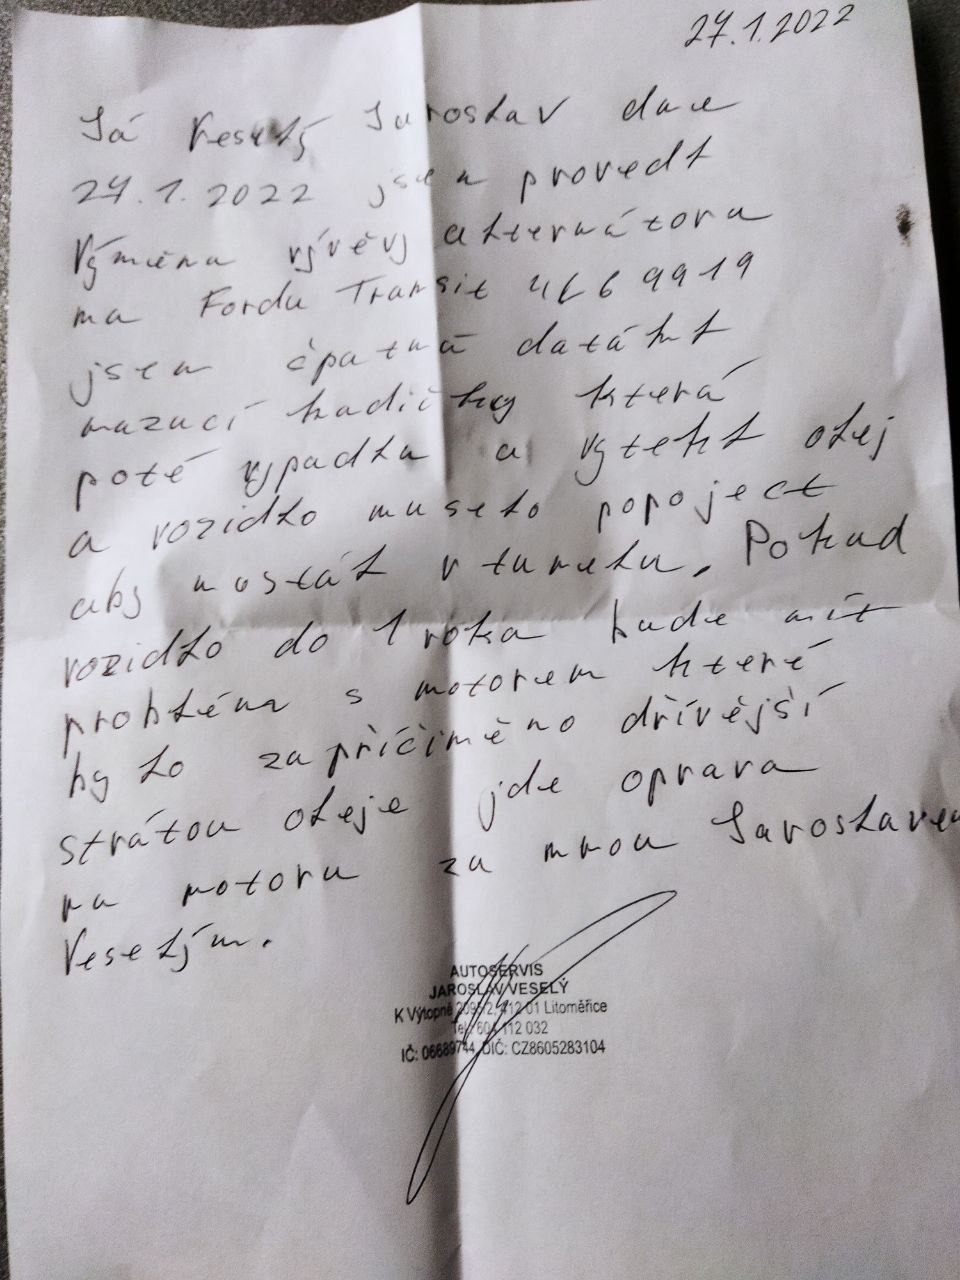 27.1.2022
Já Veselý Jaroslav dne
27.1.2022 jsem provedl
Výměnu vývěvy alternátoru
na Fordu Transit 4L6 9919
jsem špatně datáhl
mazací hadičky která
poté vypadla a vytekl olej
a vozidlo muselo popoject
aby nostál v tunelu. Pokud
vozidlo do 1 roka bude mít
problém s motorem které
bylo zapříčiněno dřívější
strátou oleje jde oprava
na motoru za mnou Jaroslavem
Veselým.
AUTOSERVIS
JAROSLAV VESELÝ
K Výtopně 2095/2, 412 01 Litoměřice
Tel.: 604 112 032
IČ: 06689744, DIČ: CZ8605283104